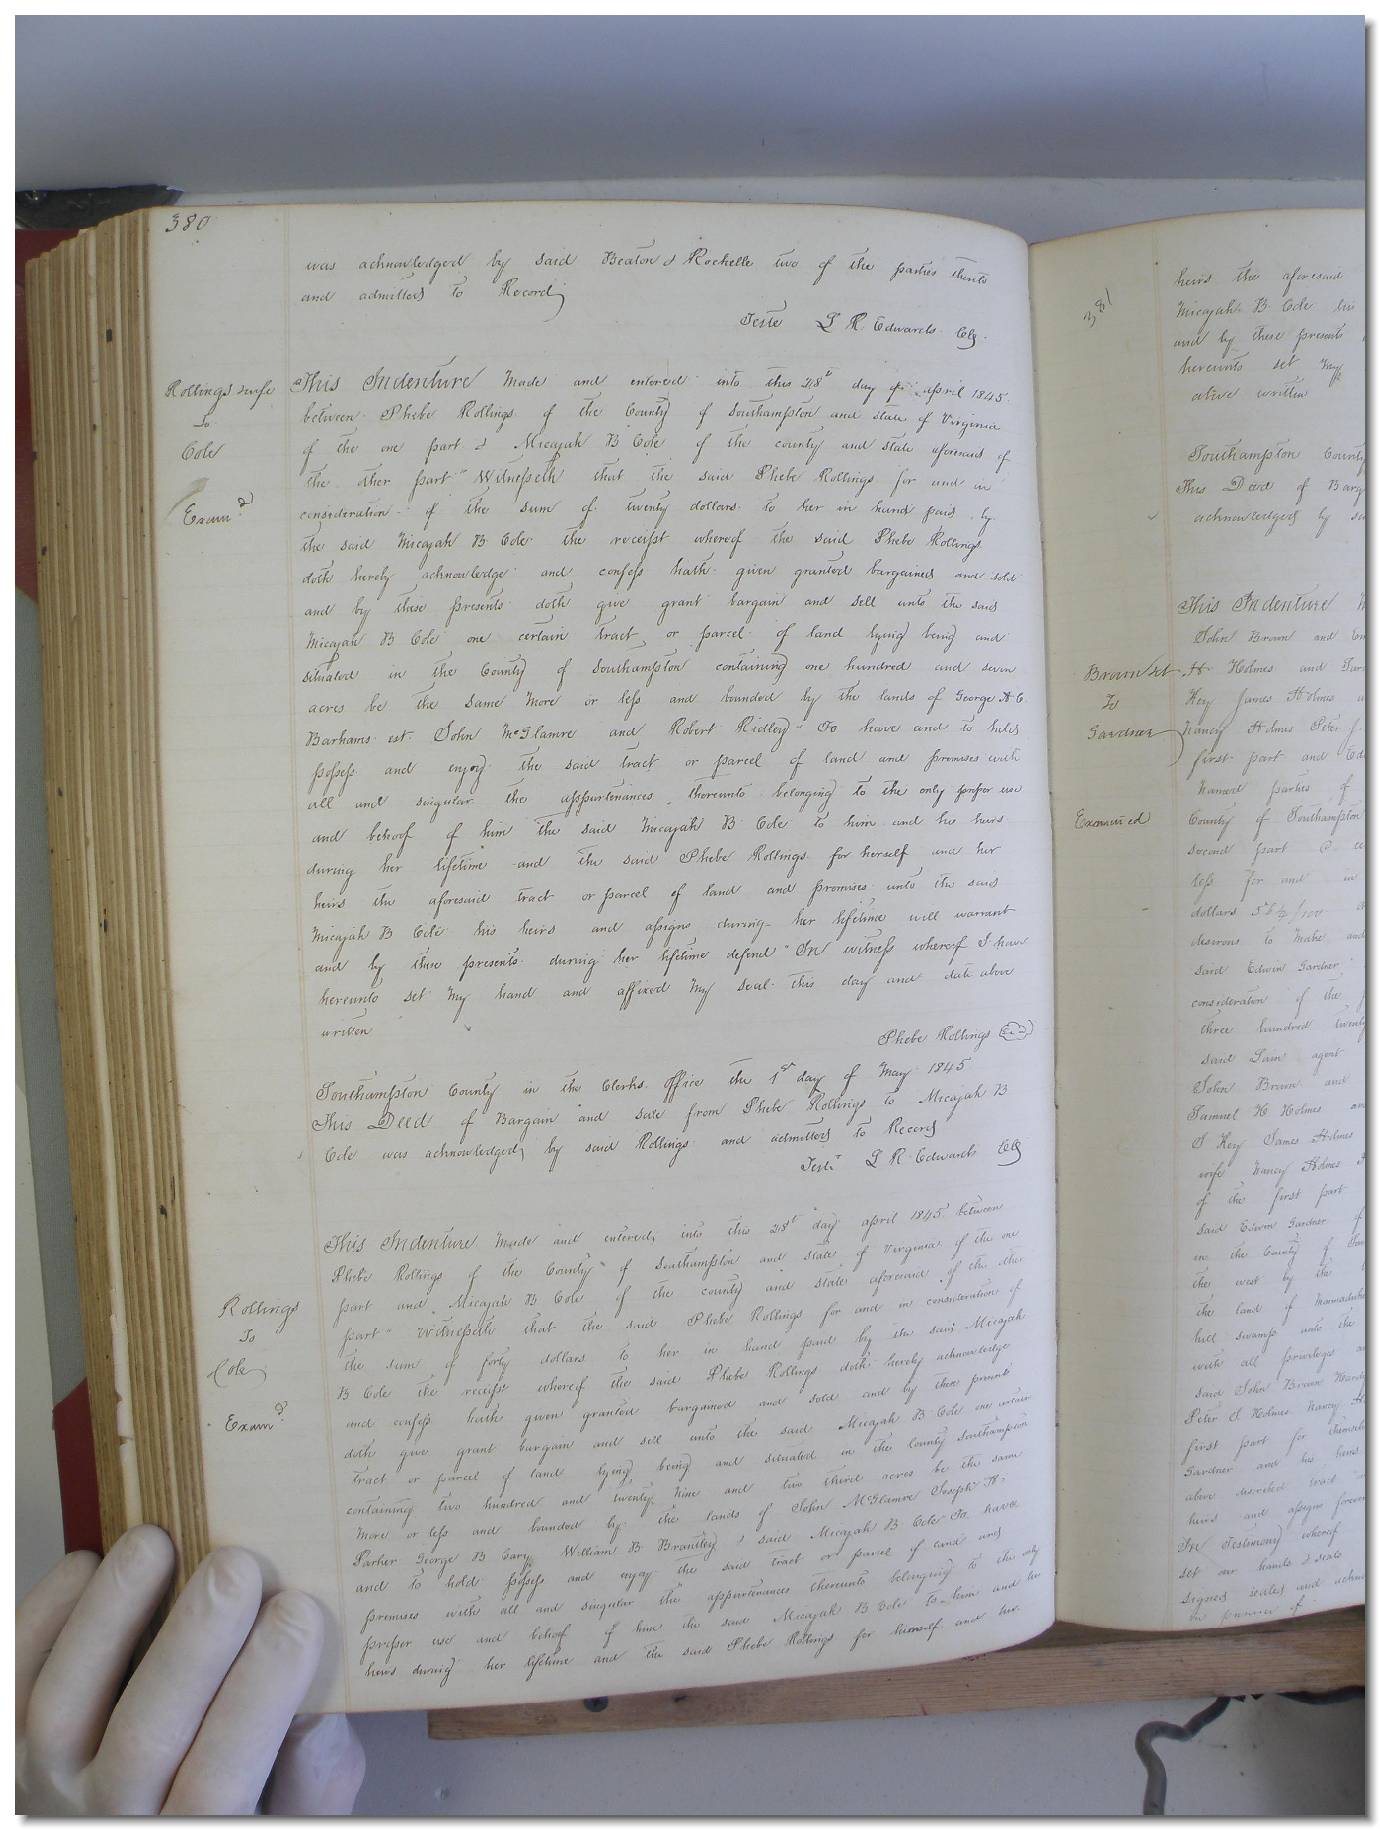 380
was acknowledged by said Beaton & Rochelle two of the parties thereto
and admitted to Record
Teste L R. Edwards Clk.
Rollings wife
To
Cole
Exam.d
This Indenture Made and entered into this 28th day of april 1845.
between Phebe Rollings of the County of Southampton and state of Virginia
of the one part & Micajah B Cole of the county and state aforesaid of
the other part Witnesseth that the said Phebe Rollings for and in
consideration of the sum of twenty dollars to her in hand paid by
the said Micajah B. Cole the receipt whereof the said Phebe Rollings
doth hereby acknowledge and confess hath given granted bargained and sold
and by these presents doth give grant bargain and sell unto the said
Micajah B Cole one certain tract or parcel of land lying being and
situated in the County of Southampton containing one hundred and seven
acres be the same More or less and bounded by the lands of George H. C.
Barhams est. John McGlamre and Robert Ridley To have and to hold
possess and enjoy the said tract or parcel of land and premises with
all and singular the appurtenances thereunto belonging to the only proper use
and behoof of him the said Micajah B Cole to him and his heirs
during her lifetime and the said Phebe Rollings for herself and her
heirs the aforesaid tract or parcel of land and premises unto the said
Micajah B Cole his heirs and assigns during her lifetime will warrant
and by these presents during her lifetime defend In witness whereof I have
hereunto set My hand and affixed My seal this day and date above
written
Phebe Rollings Seal
Southampton County in the Clerks Office the 1st day of May 1845
This Deed of Bargain and sale from Phebe Rollings to Micajah B
Cole was acknowledged by said Rollings and admitted to Record
Teste L R. Edwards Clk
Rollings
To
Cole
Exam.d
This Indenture Made and entered into this 28th day april 1845. between
Phebe Rollings of the County of Southampton and state of Virginia of the one
part and Micajah B Cole of the county and state aforesaid of the other
part Witnesseth that the said Phebe Rollings for and in consideration of
the sum of forty dollars to her in hand paid by the said Micajah
B Cole the receipt whereof the said Phebe Rollings doth hereby acknowledge
and confess hath given granted bargained and sold and by these presents
doth give grant bargain and sell unto the said Micajah B Cole one certain
tract or parcel of land lying being and situated in the County Southampton
containing two hundred and twenty Nine and two third acres be the same
More or less and bounded by the lands of John McGlamre Joseph H.
Parker George B Cary William B Brantley & said Micajah B Cole To have
and to hold possess and enjoy the said tract or parcel of land and
premises with all and singular the appurtenances thereunto belonging to the only
proper use and behoof of him the said Micajah B Cole to him and his
heirs during her lifetime and the said Phebe Rollings for himself and her
381
heirs the aforesaid
Micajah B. Cole his
and by these presents
hereunto set My
above written
Southampton County
This Deed of Barg
acknowledged by sa
Brown &c
To
Gardner
Examined
This Indenture M
John Brown and
H Holmes and
Key James Holmes
Nancy Holmes Peter J.
first part and Ed
Named parties of
County of Southampton
second part
less for and in
dollars 56½/100
desirous to Make and
said Edwin Gardner
consideration of the
three hundred twenty
said Pain agent
John Brown and
Samuel H Holmes an
J Key James Holmes
wife Nancy Holmes
of the first part
said Edwin Gardner of
in the County of Sou
the west by the
the land of Marmaduke
hill swamp unto the
with all privileges a
said John Brown
Peter J Holmes Nancy H
first part for themselves
Gardner and his heirs
above described tract
heirs and assigns forever
In Testimony whereof
set our hands & seals
Signed sealed and ackn
in presence of